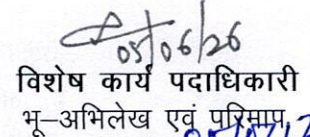 05/06/26
विशेष कार्य पदाधिकारी
भू-अभिलेख एवं परिमाप